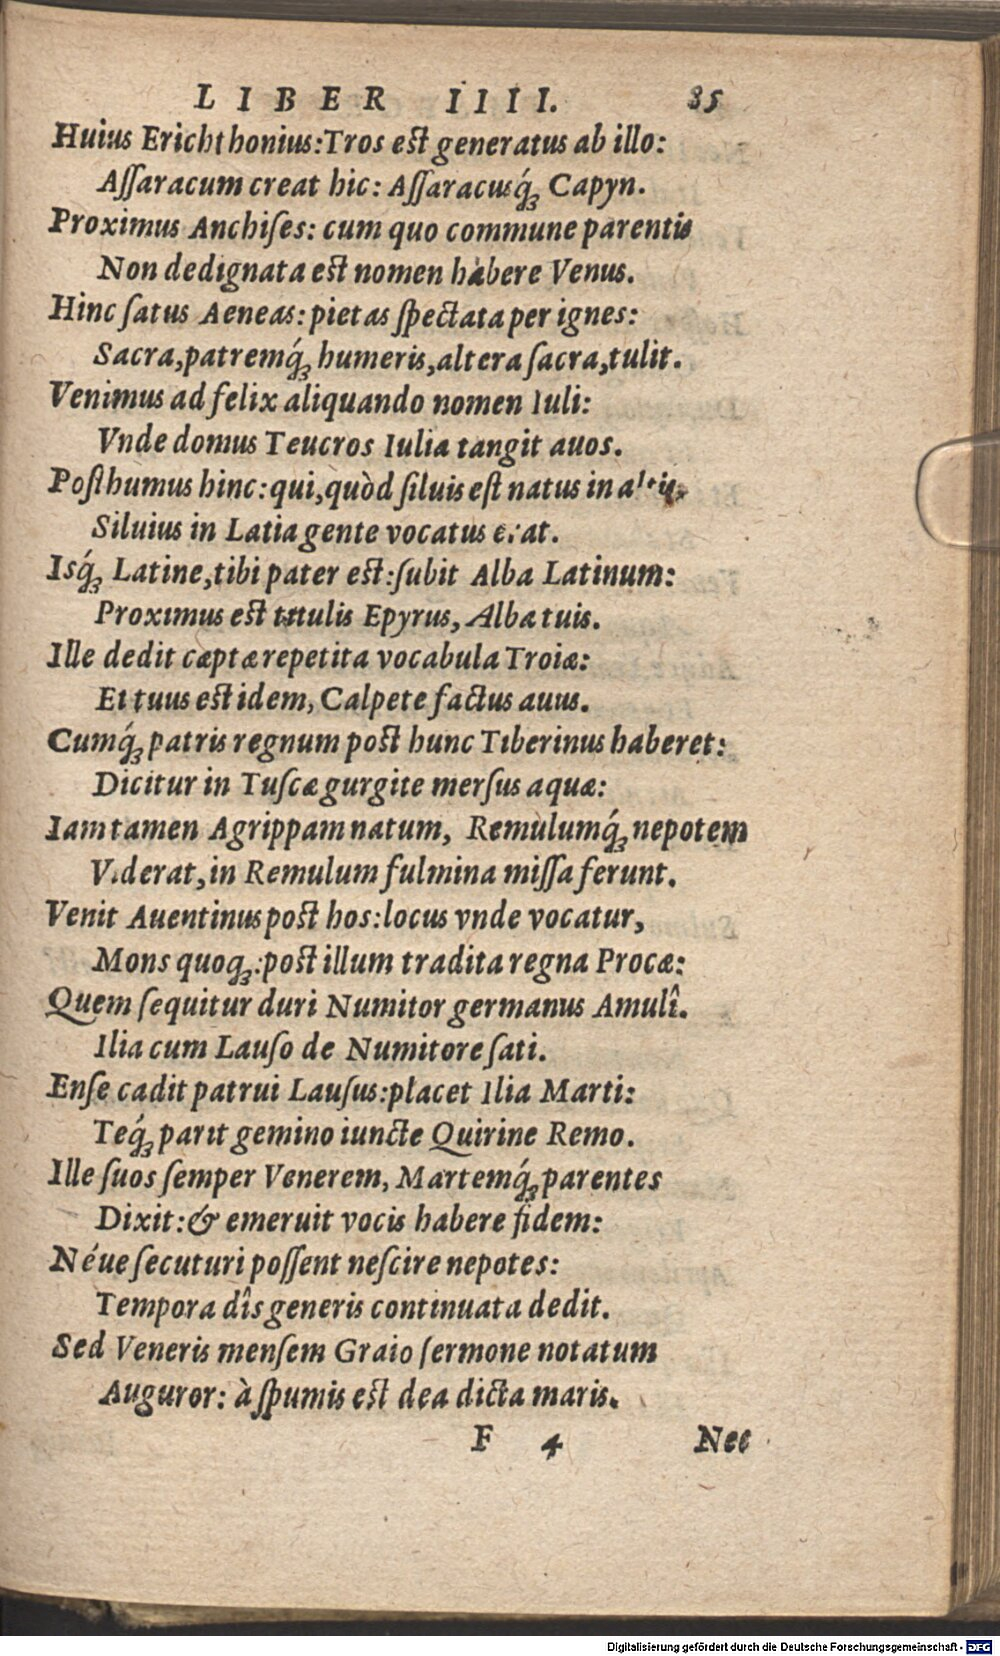 LIBER IIII. 85
Huius Erichthonius:Tros est generatus ab illo:
Aſſaracum creat hic: Aſſaracusq́ꝫ Capyn.
Proximus Anchiſes: cum quo commune parentis
Non dedignata est nomen habere Venus.
Hinc ſatus Aeneas: pietas ſpectata per ignes:
Sacra,patremq́ꝫ humeris,altera ſacra,tulit.
Venimus ad felix aliquando nomen Iuli:
Vnde domus Teucros Iulia tangit auos.
Poſthumus hinc:qui,quòd ſiluis eſt natus in
Siluius in Latia gente vocatus erat.
Isq́ꝫ Latine,tibi pater est:ſubit Alba Latinum:
Proximus est titulis Epyrus, Alba tuis.
Ille dedit captæ repetita vocabula Troiæ:
Et tuus est idem, Calpete factus auus.
Cumq́ꝫ patris regnum post hunc Tiberinus haberet:
Dicitur in Tuſcæ gurgite merſus aquæ:
Iam tamen Agrippam natum, Remulumq́ꝫ nepotem
Viderat,in Remulum fulmina miſſa ferunt.
Venit Auentinus post hos:locus vnde vocatur,
Mons quoqꝫ:post illum tradita regna Procæ:
Quem ſequitur duri Numitor germanus Amulî.
Ilia cum Lauſo de Numitore ſati.
Enſe cadit patrui Lauſus:placet Ilia Marti:
Teq́ꝫ parit gemino iuncte Quirine Remo.
Ille ſuos ſemper Venerem, Martemq́ꝫ parentes
Dixit:& emeruit vocis habere fidem:
Néue ſecuturi poſſent neſcire nepotes:
Tempora dîs generis continuata dedit.
Sed Veneris menſem Graio ſermone notatum
Auguror: à ſpumis est dea dicta maris.
F 4 Nec
Digitalisierung gefördert durch die Deutsche Forschungsgemeinschaft - DFG